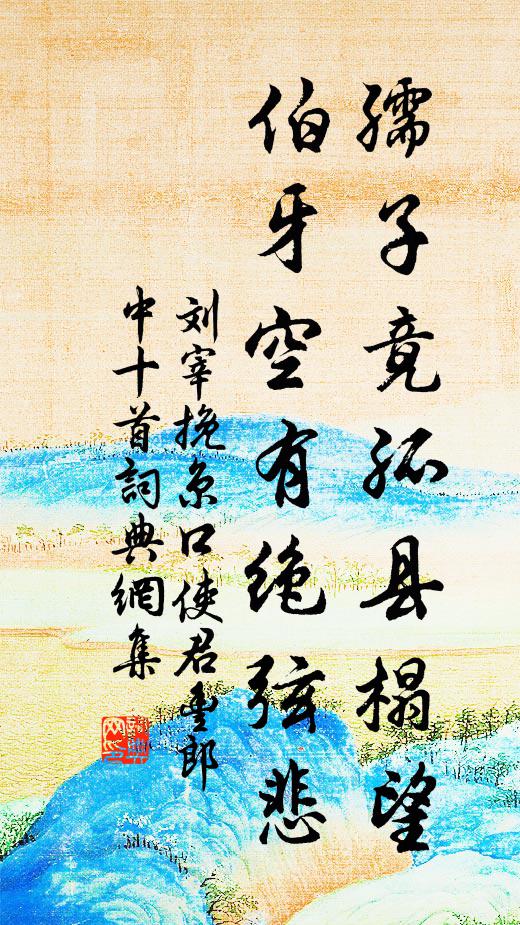 孺子竟孤县榻望
伯牙空有绝弦悲
刘宰挽京口使君丰郎
中十首詞典網集